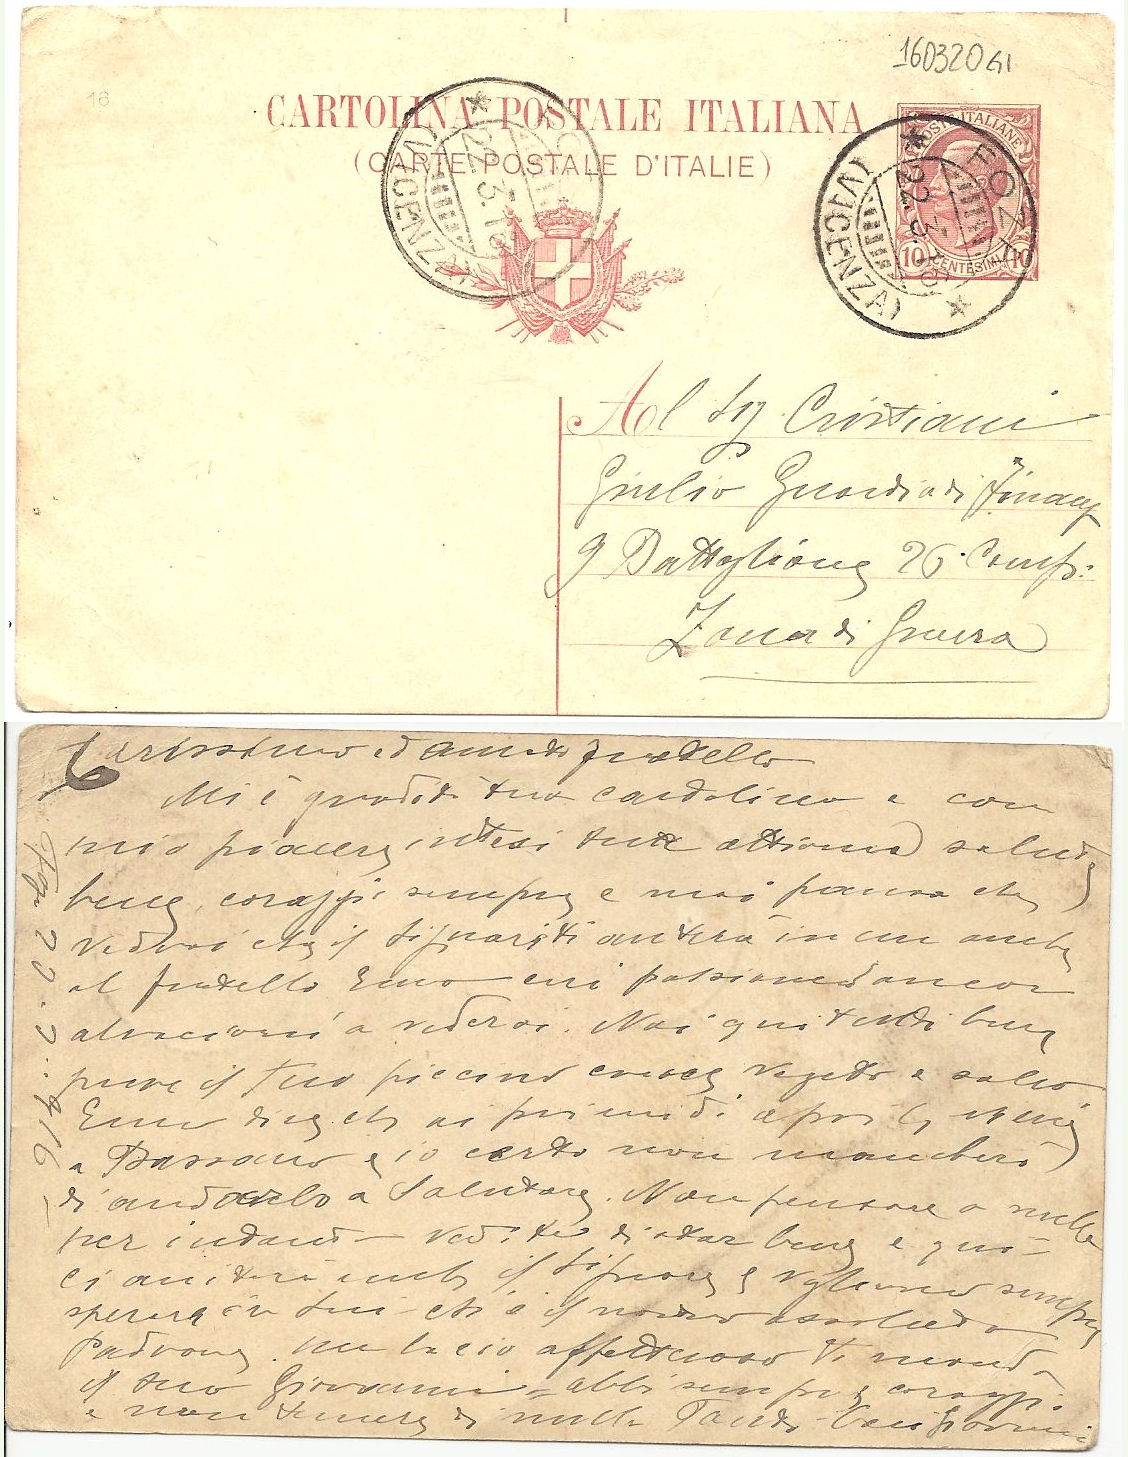 160320GI
18
CARTOLINA POSTALE ITALIANA
(CARTE POSTALE D'ITALIE)
POSTE ITALIANE
10 CENTESIMI 10
FOZA
22.3.16
(VICENZA)
22.3.16
(VICENZA)
Al Sig Cristiani
Giulio Guardia di Finanz
9 Battaglione 26 Comp:
Zona di Guerra
Carissimo ed amato fratello
Mi è gradodi tua cardolina e con
mio piacere intesi tua ottima salute
bene, coraggi sempre e mai paura che
vedrai che il Signore ti auterà in un anche
al fratello Emo
a vederci. Noi qui tutti bene
pure il tuo piccino cresce vegeto e salvo
Emo dice che ai primi di aprile verrà
a Bassano e io certo non mancherò
di andarlo a salutare. Non pensare a nulla
per indanto vedi te di star bene e poi
ci auterà anche il Signore e vogliamo sempre
sperare in Lui che è il nostro assoluto
Padrone. un bacio affettuoso ti manda
il tuo Giovanni = abbi sempre coraggi.
e non temere di nulla Tanti baci Giovanni
Foza 22.3.916